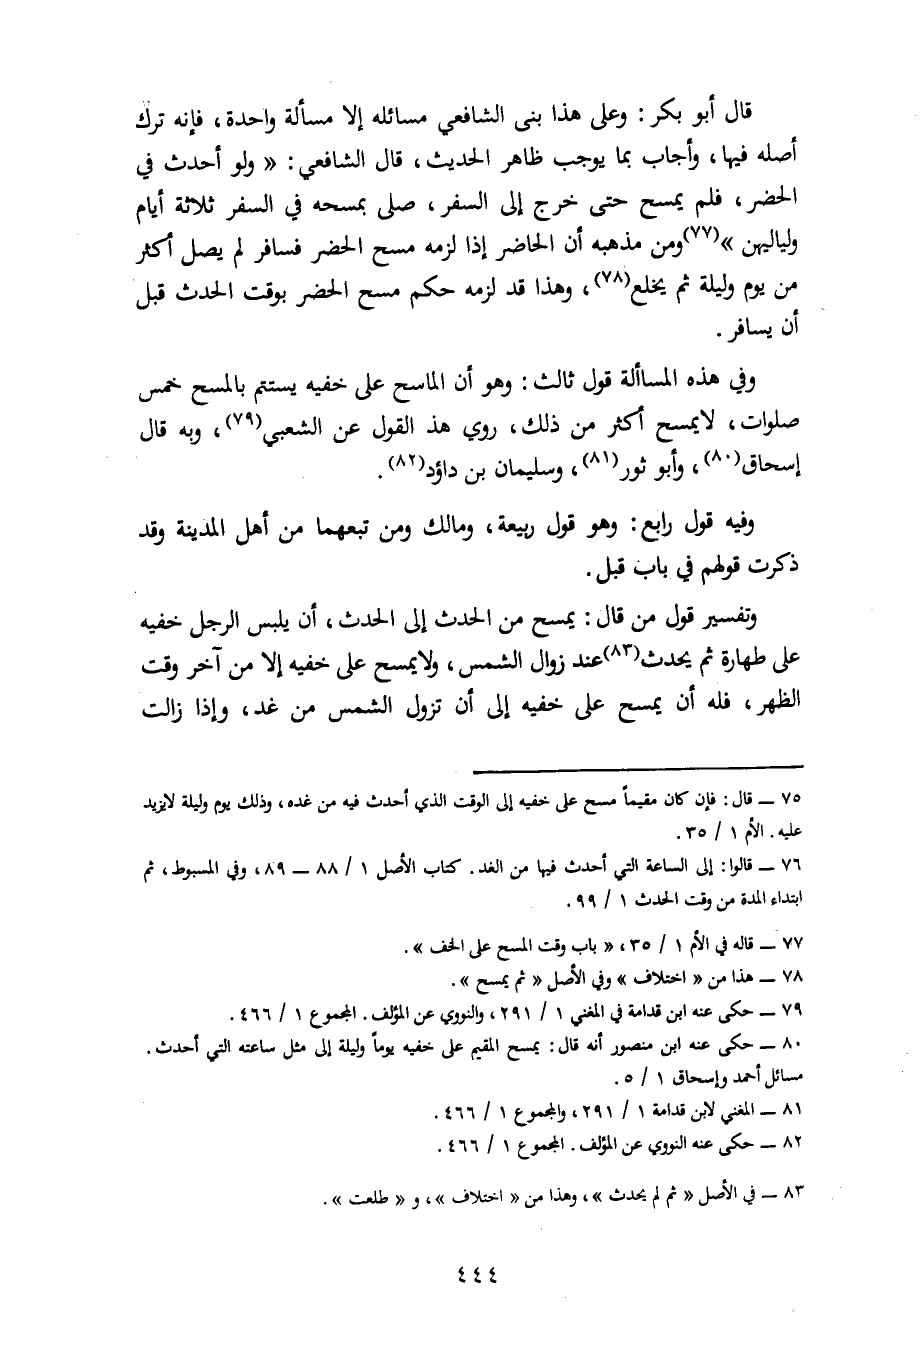 قال أبو بكر : وعلى هذا بنى الشافعي مسائله إلا مسألة واحدة ، فإنه ترك
أصله فيها ، وأجاب بما يوجب ظاهر الحديث ، قال الشافعي : « ولو أحدث في
الحضر ، فلم يمسح حتى خرج إلى السفر ، صلى بمسحه في السفر ثلاثة أيام
ولياليهن »(٧٧)ومن مذهبه أن الحاضر إذا لزمه مسح الحضر فسافر لم يصل أكثر
من يوم وليلة ثم يخلع(٧٨) ، وهذا قد لزمه حكم مسح الحضر بوقت الحدث قبل
أن يسافر .
وفي هذه المسألة قول ثالث : وهو أن الماسح على خفيه يستتم بالمسح خمس
صلوات ، لايمسح أكثر من ذلك ، روي هذ القول عن الشعبي(٧٩) ، وبه قال
إسحاق(٨٠) ، وأبو ثور(٨١) ، وسليمان بن داؤد(٨٢) .
وفيه قول رابع : وهو قول ربيعة ، ومالك ومن تبعهما من أهل المدينة وقد
ذكرت قولهم في باب قبل .
وتفسير قول من قال : يمسح من الحدث إلى الحدث ، أن يلبس الرجل خفيه
على طهارة ثم يحدث(٨٣)عند زوال الشمس ، ولايمسح على خفيه إلا من آخر وقت
الظهر ، فله أن يمسح على خفيه إلى أن تزول الشمس من غد ، وإذا زالت
٧٥ ــ قال : فإن كان مقيماً مسح على خفيه إلى الوقت الذي أحدث فيه من غده ، وذلك يوم وليلة لايزيد
عليه . الأم ١ / ٣٥ .
٧٦ ــ قالوا : إلى الساعة التي أحدث فيها من الغد . كتاب الأصل ١ / ٨٨ ــ ٨٩ ، وفي المسبوط ، ثم
ابتداء المدة من وقت الحدث ١ / ٩٩ .
٧٧ ــ قاله في الأم ١ / ٣٥ ، « باب وقت المسح على الخف » .
٧٨ ــ هذا من « اختلاف » وفي الأصل « ثم يمسح » .
٧٩ ــ حكى عنه ابن قدامة في المغني ١ / ٢٩١ ، والنووي عن المؤلف . المجموع ١ / ٤٦٦ .
٨٠ ــ حكى عنه ابن منصور أنه قال : يمسح المقيم على خفيه يوماً وليلة إلى مثل ساعته التي أحدث .
مسائل أحمد وإسحاق ١ / ٥ .
٨١ ــ المغني لابن قدامة ١ / ٢٩١ ، والمجموع ١ / ٤٦٦ .
٨٢ ــ حكى عنه النووي عن المؤلف . المجموع ١ / ٤٦٦ .
٨٣ ــ في الأصل « ثم لم يحدث » ، وهذا من « اختلاف » ، و « طلعت » .
٤٤٤